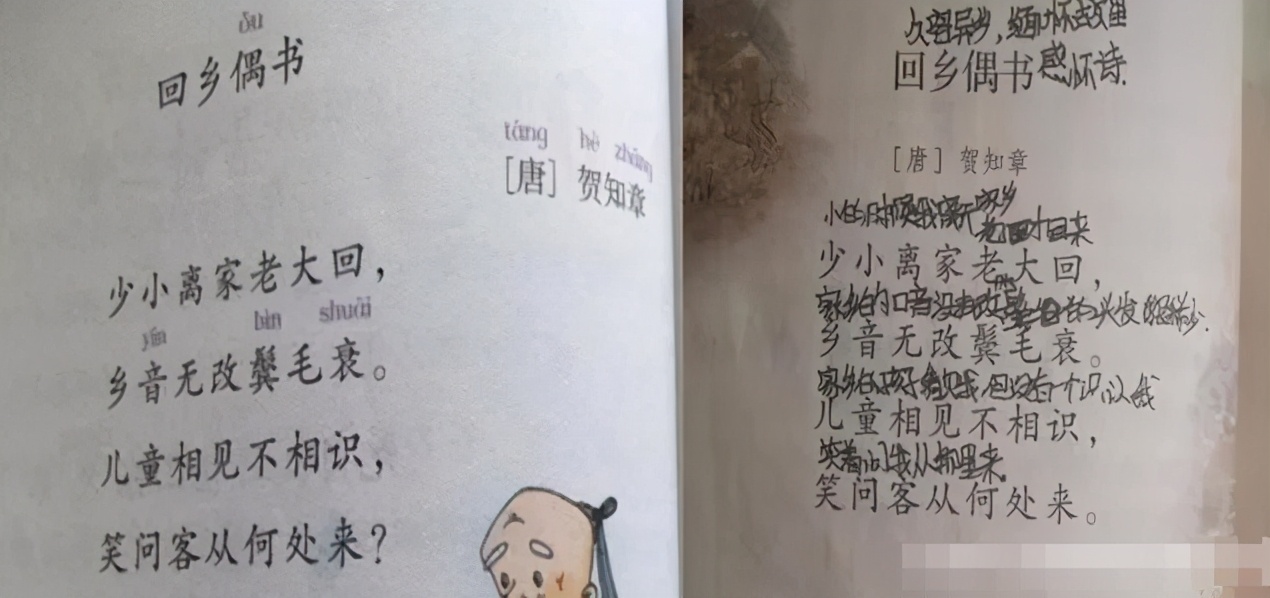 ǒu
回乡偶书
táng hè zhāng
[唐] 贺知章
少小离家老大回，
yīn bìn shuāi
乡音无改鬓毛衰。
儿童相见不相识，
笑问客从何处来？
久客异乡，缅怀故里
感怀诗.
回乡偶书
[唐] 贺知章
小的时候我离开家乡
老了才回来
少小离家老大回，
家乡的口音没有改
头发
乡音无改鬓毛衰。
家乡的孩子看见我，但没有一个认识我
儿童相见不相识，
笑着问我从哪里来.
笑问客从何处来。